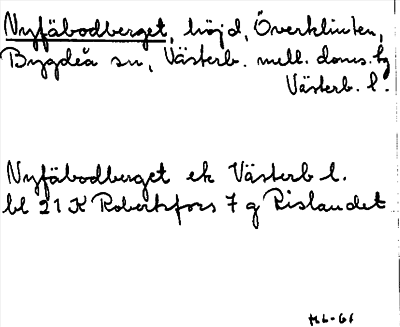 Nyfäbodberget, höjd, Överklinten,
Bygdeå sn, Västerb. mell. doms. bg
Västerb. l.
Nyfäbodberget ek Västerb l.
bl 21 K Robertsfors 7 g Rislandet